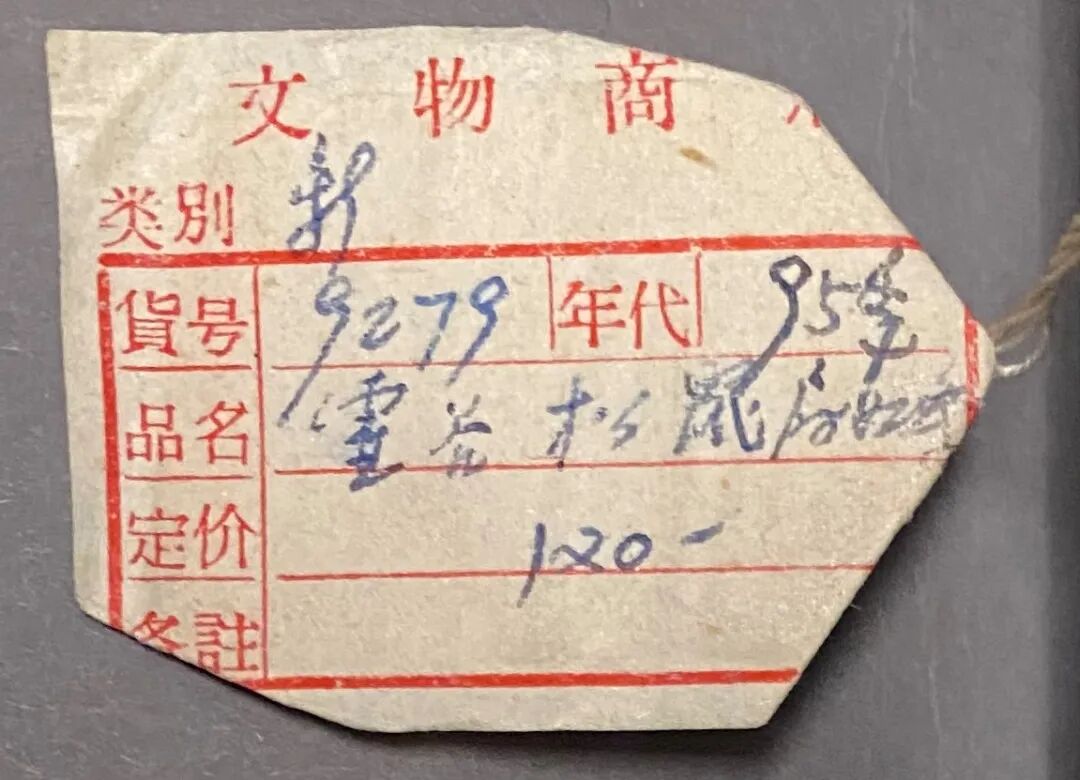 文物商
类別 新
貨号 9279 年代 95年
品名 雲谷松鼠
定价 120-
备註